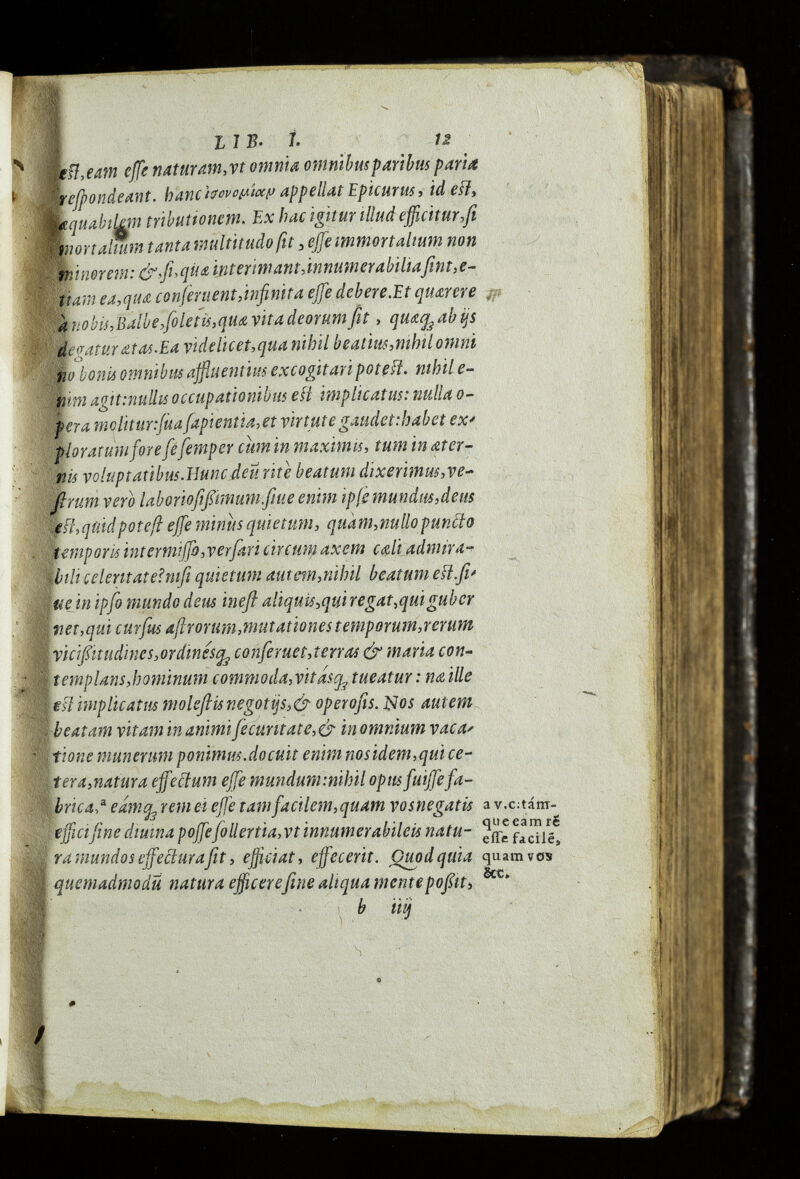 LIB. I. 12
est,eam esse naturam,vt omnia omnibus paribus paria
respondeant. hanc ἰσονομίαμ appellat Epicurus, id est,
æquabilem tributionem. Ex hac igitur illud efficitur,si
mortalium tanta multitudo sit, esse immortalium non
minorem: &,si,quæ interimant,innumerabilia sint,e-
tiam ea,quæ conseruent,infinita esse debere.Et quærere
à nobis,Balbe,soletis,quæ vita deorum sit, quæq; ab ijs
degatur ætas.Ea videlicet,qua nihil beatius,nihil omni
no bonis omnibus affluentius excogitari potest. nihil e-
nim agit:nullis occupationibus est implicatus: nulla o-
pera molitur:sua sapientia,et virtute gaudet:habet ex-
ploratum fore se semper cùm in maximis, tum in æter-
nis voluptatibus.Hunc deū ritè beatum dixerimus,ve-
strum verò laboriosissimum.siue enim ipse mundus,deus
est,quid potest esse minùs quietum, quàm,nullo puncto
temporis intermisso,versari circum axem cæli admira-
bili celeritate?nisi quietum autem,nihil beatum est.si-
ue in ipso mundo deus inest aliquis,qui regat,qui guber
net,qui cursus astrorum,mutationes temporum,rerum
vicissitudines,ordinésq; conseruet,terras & maria con-
templans,hominum commoda,vitásq; tueatur: næ ille
est implicatus molestis negotijs,& operosis. Nos autem
beatam vitam in animi securitate,& in omnium vaca-
tione munerum ponimus.docuit enim nos idem,qui ce-
tera,natura effectum esse mundum:nihil opus fuisse fa-
brica,ª eámq; rem ei esse tam facilem,quam vos negatis
effici sine diuina posse sollertia,vt innumerabileis natu-
ra mundos effectura sit, efficiat, effecerit. Quod quia
quemadmodū natura efficere sine aliqua mente possit,
b iiij
a v.c:tám-
que eam rē
esse facilē,
quam vos
&c.